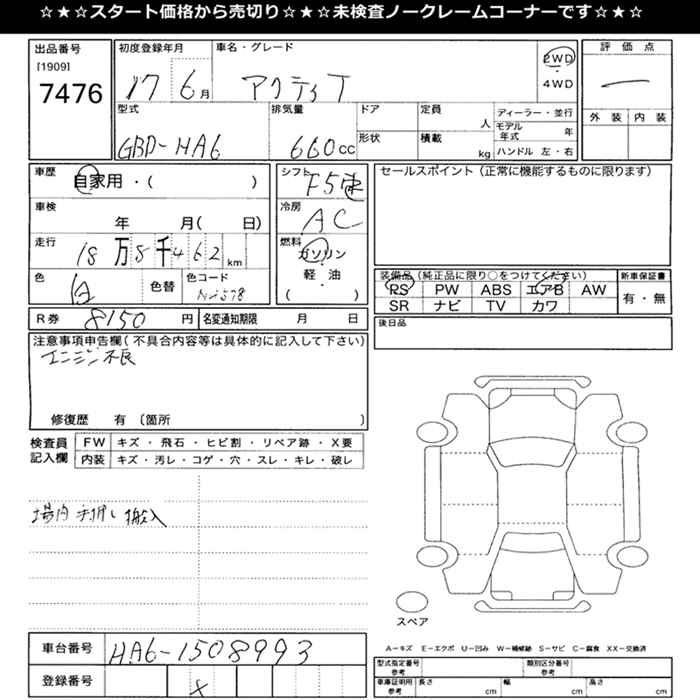 ☆★☆★スタート価格から売切り☆★☆★未検査ノークレームコーナーです☆★☆
出品番号
[1909]
7476
初度登録年月
17 6月
車名・グレード
アクティT
2WD
4WD
評価点
一
外装 内装
型式
GBD-HA6
排気量
660cc
ドア
形状
定員
人
積載
kg
ディーラー・並行
モデル年式 年
ハンドル 左・右
車歴
自家用・( )
車検
年 月( 日)
走行
18万8千462km
色
白
色替
色コード
NH578
シフト
F5速
冷房
AC
燃料
ガソリン
軽・油
( )
セールスポイント(正常に機能するものに限ります)
装備品(純正品に限り○をつけてください)
RS PW ABS エアB AW
SR ナビ TV カワ
新車保証書
有・無
R券 8150円
名変通知期限 月 日
後日品
注意事項申告欄(不具合内容等は具体的に記入して下さい)
エンジン不良
修復歴 有 〔箇所 〕
検査員記入欄
FW キズ・飛石・ヒビ割・リペア跡・X要
内装 キズ・汚レ・コゲ・穴・スレ・キレ・破レ
場内 手押し 搬入
スペア
A−キズ E−エクボ U−凹み W−補修跡 S−サビ C−腐食 XX−交換済
車台番号 HA6-1508993
登録番号
型式指定番号
参考
類別区分番号
参考
車庫証明用
参考
長さ cm
幅 cm
高さ cm